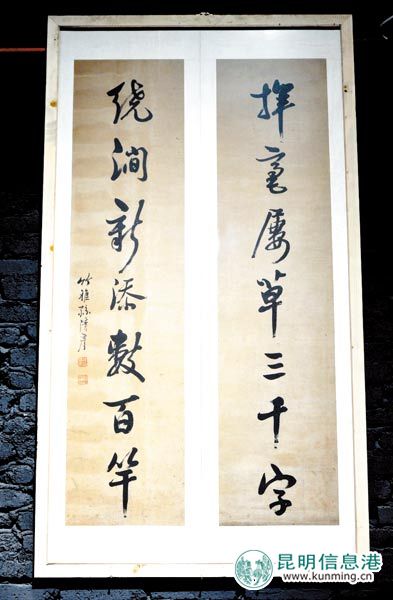 揮毫屡草三千字
繞澗新添數百竿
竹雅孫清彦
昆明信息港
www.kunming.cn